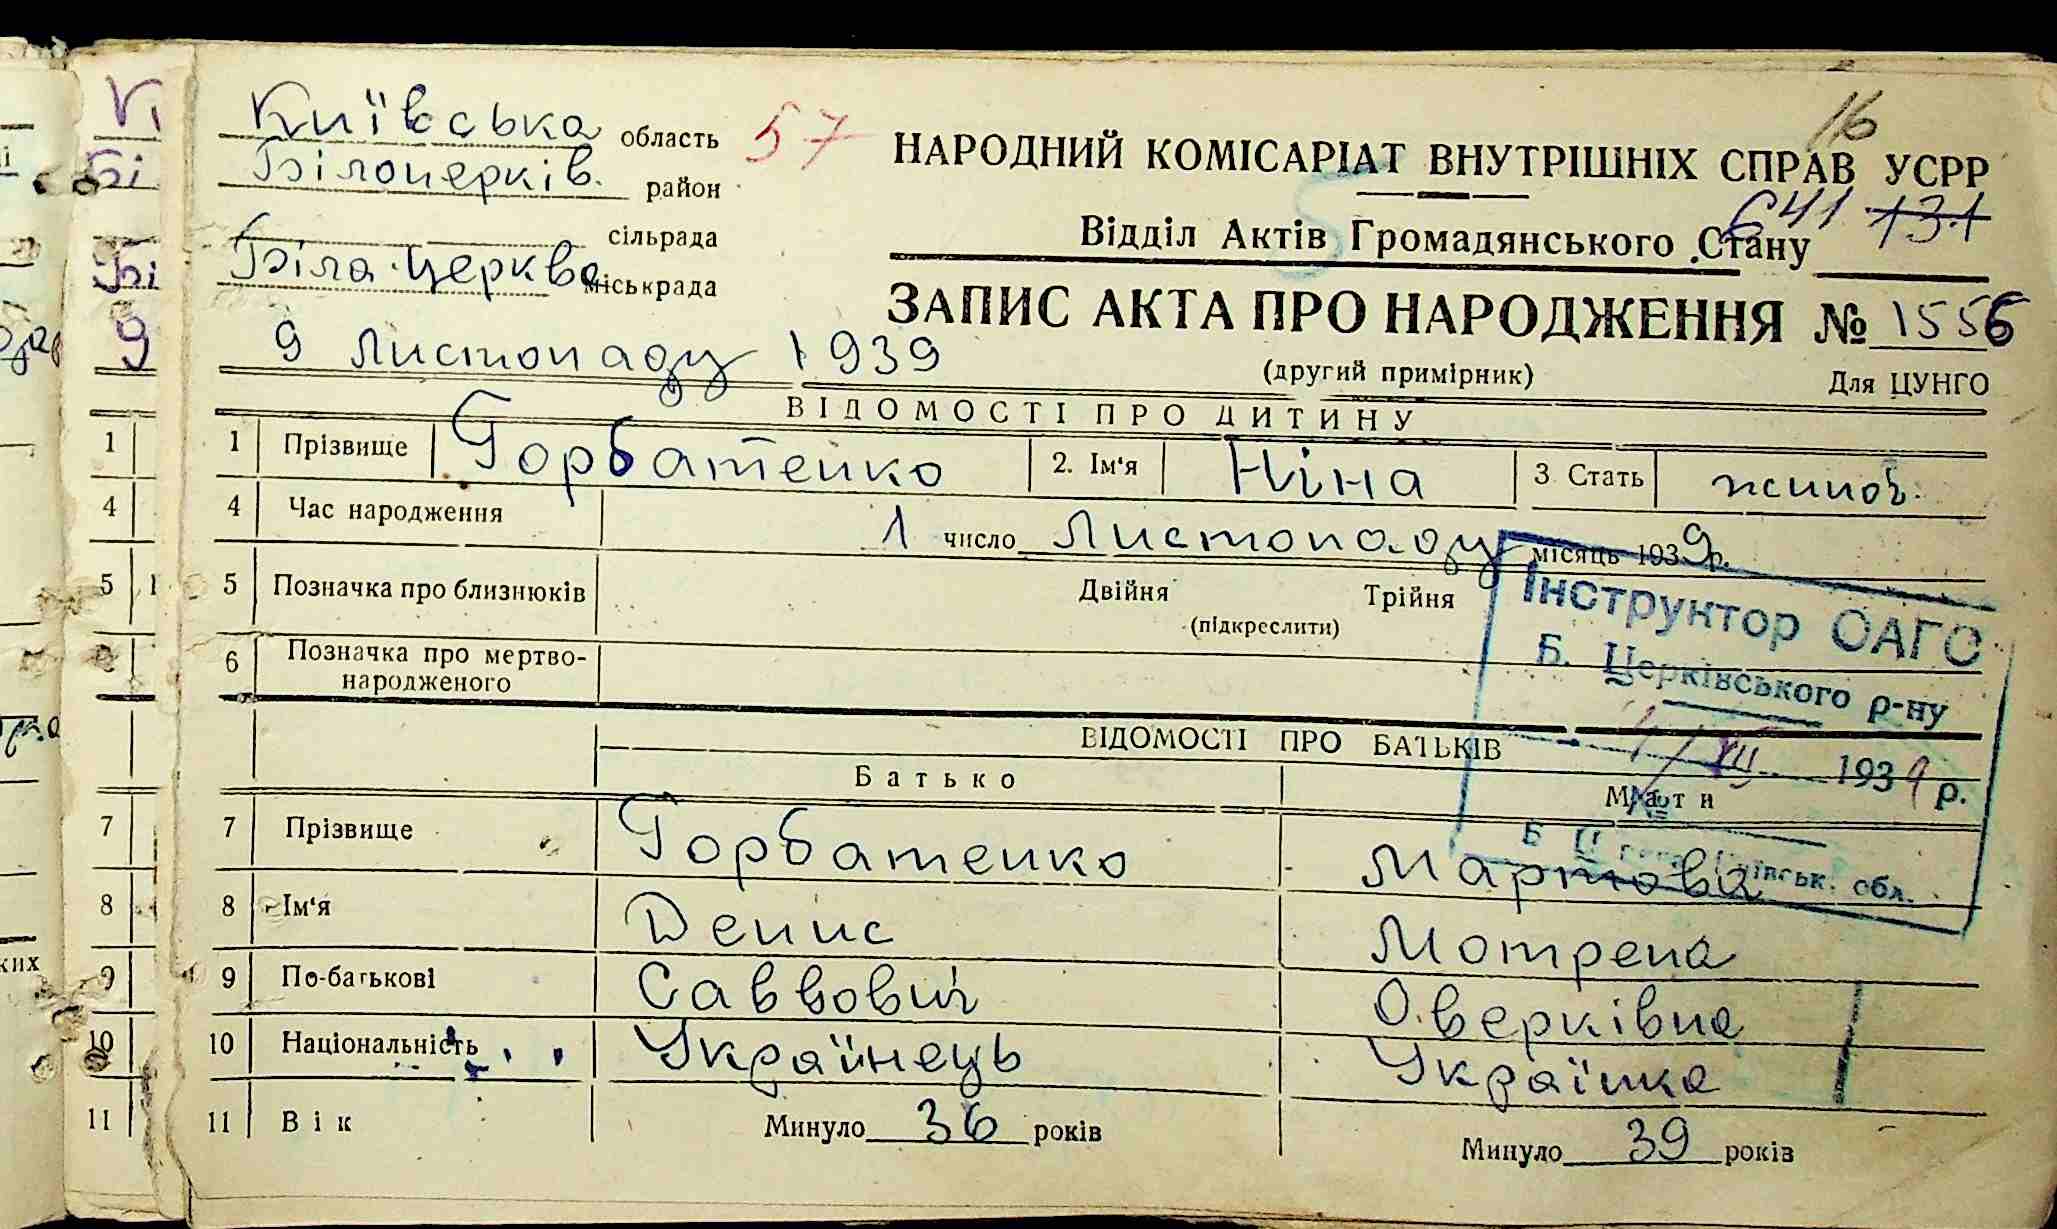 Київська область 57
Білоцерків. район
сільрада
Біла-Церква міськрада
16
НАРОДНИЙ КОМІСАРІАТ ВНУТРІШНІХ СПРАВ УСРР
641 131
Відділ Актів Громадянського Стану
ЗАПИС АКТА ПРО НАРОДЖЕННЯ № 1556
9 Листопаду 1939
(другий примірник) Для ЦУНГО
ВІДОМОСТІ ПРО ДИТИНУ
1 Прізвище Горбатенко 2. Ім'я Ніна 3 Стать жіноч.
4 Час народження 1 число Листопаду місяць 1939р.
5 Позначка про близнюків Двійня Трійня
(підкреслити)
6 Позначка про мертво-
народженого
Інструктор ОАГС
Б. Церківського р-ну
1/XII 1939 р.
ВІДОМОСТІ ПРО БАТЬКІВ
Батько Мати
7 Прізвище Горбатенко Мартова
8 Ім'я Денис Мотрена
9 По-батькові Саввович Оверківна
10 Національність Українець Українка
11 Вік Минуло 36 років Минуло 39 років